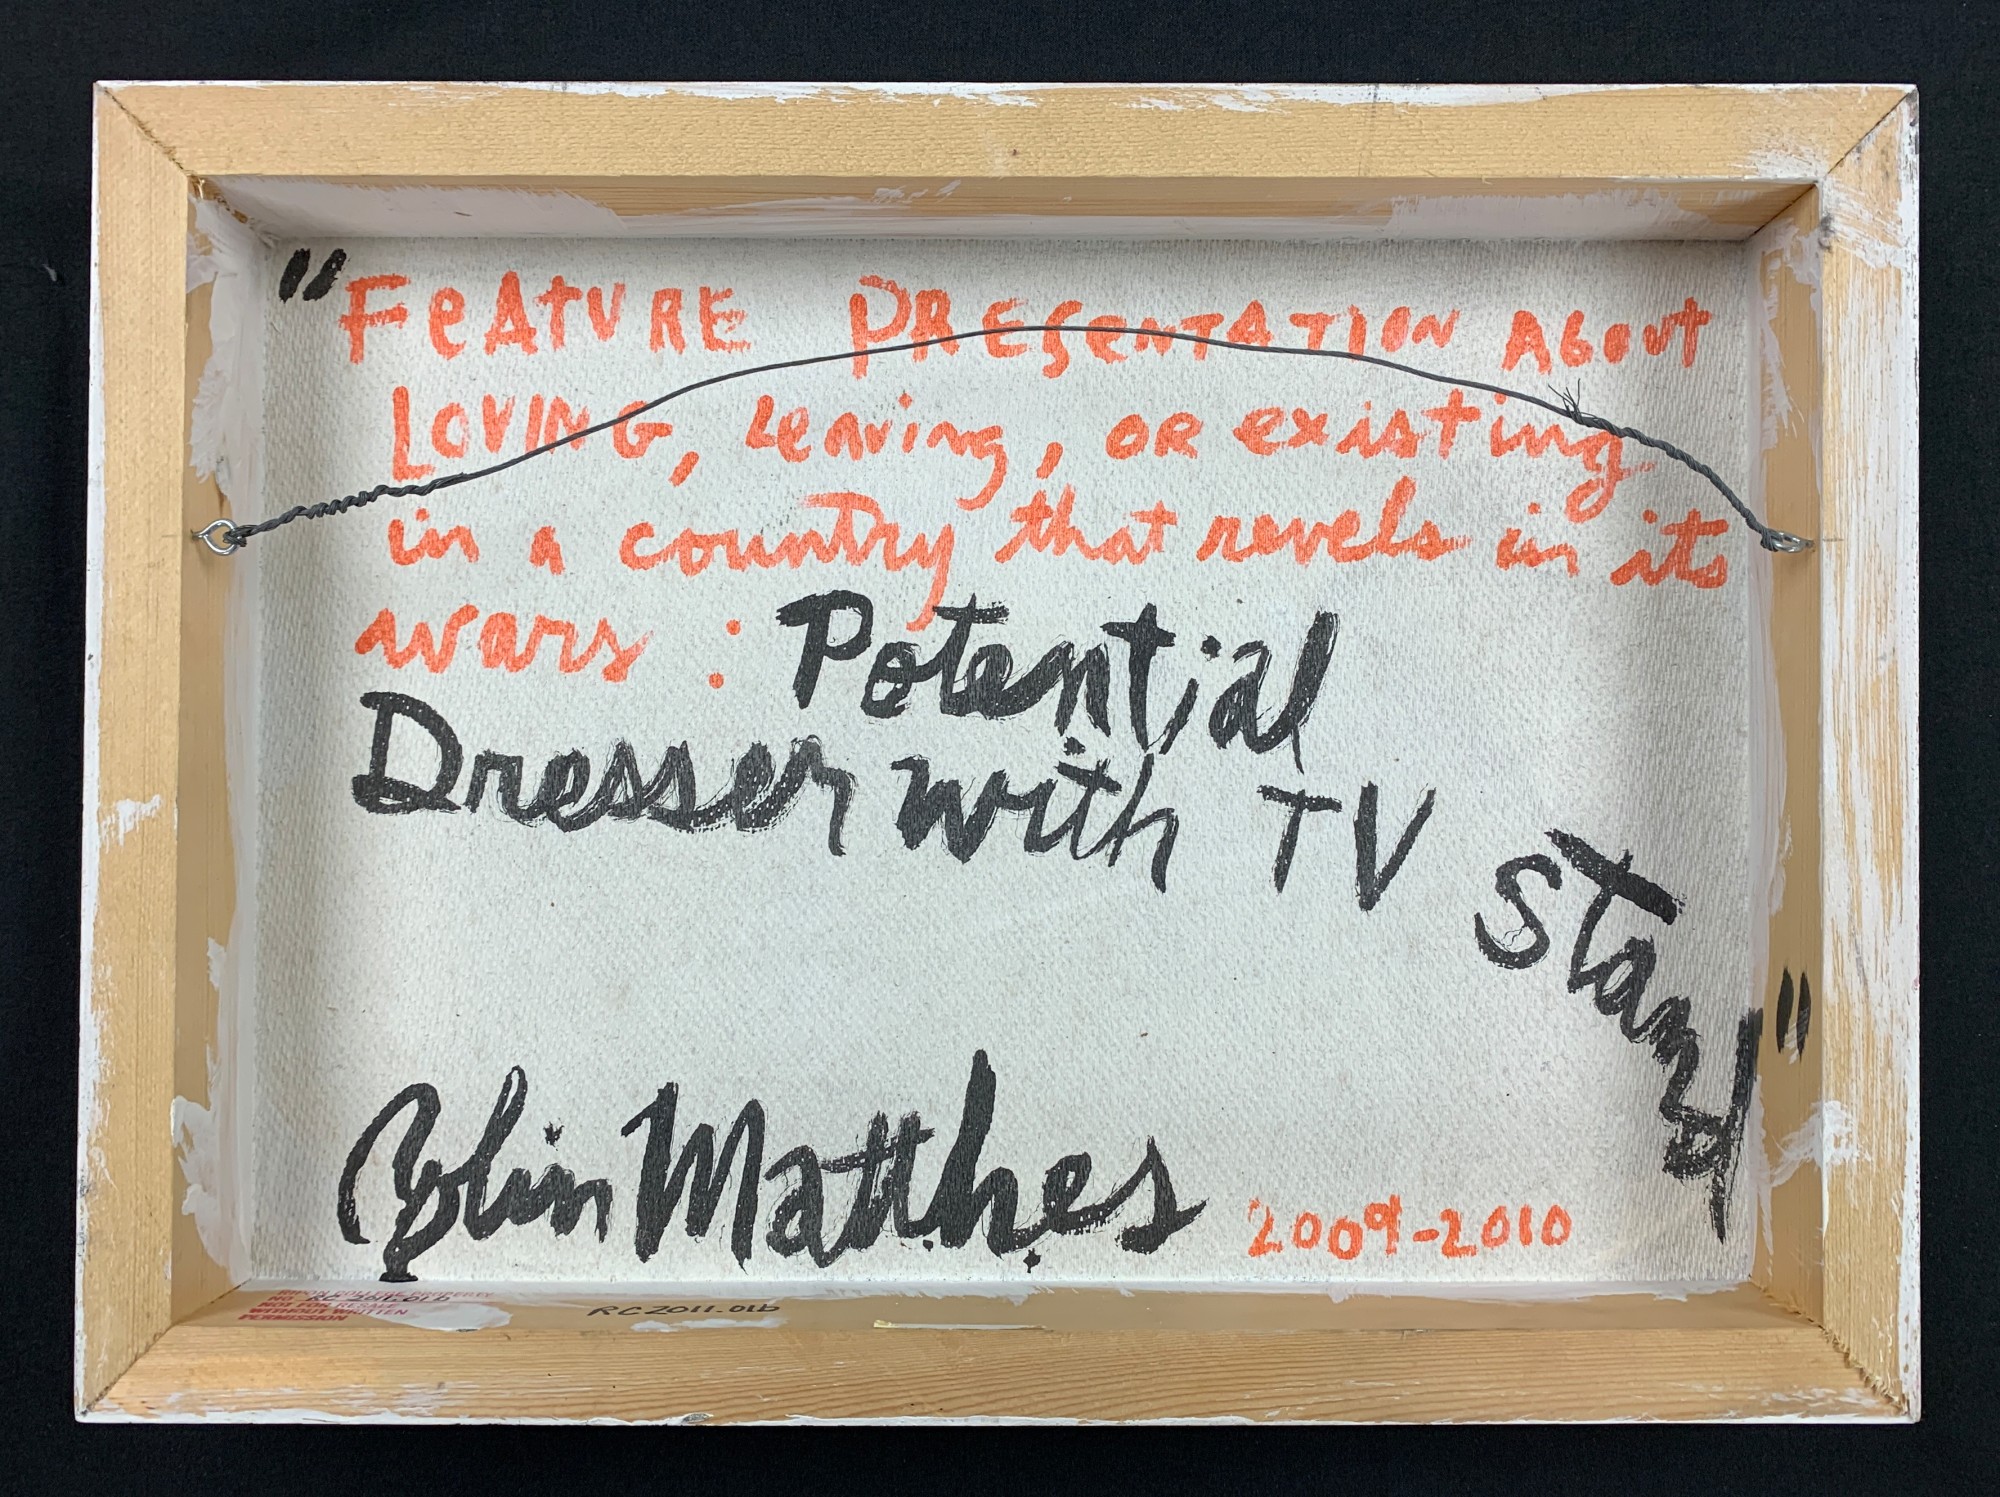 "FeATURE PRESeNTATION ABOUT
LOVING, Leaving, OR existing
in a country that revels in its
wars : Potential
Dresser with TV Stand"
Colin Matthes 2009-2010
RIPON COLLEGE PROPERTY
NO. RC 2011.01b
NOT FOR RESALE
WITHOUT WRITTEN
PERMISSION
RC2011.01b